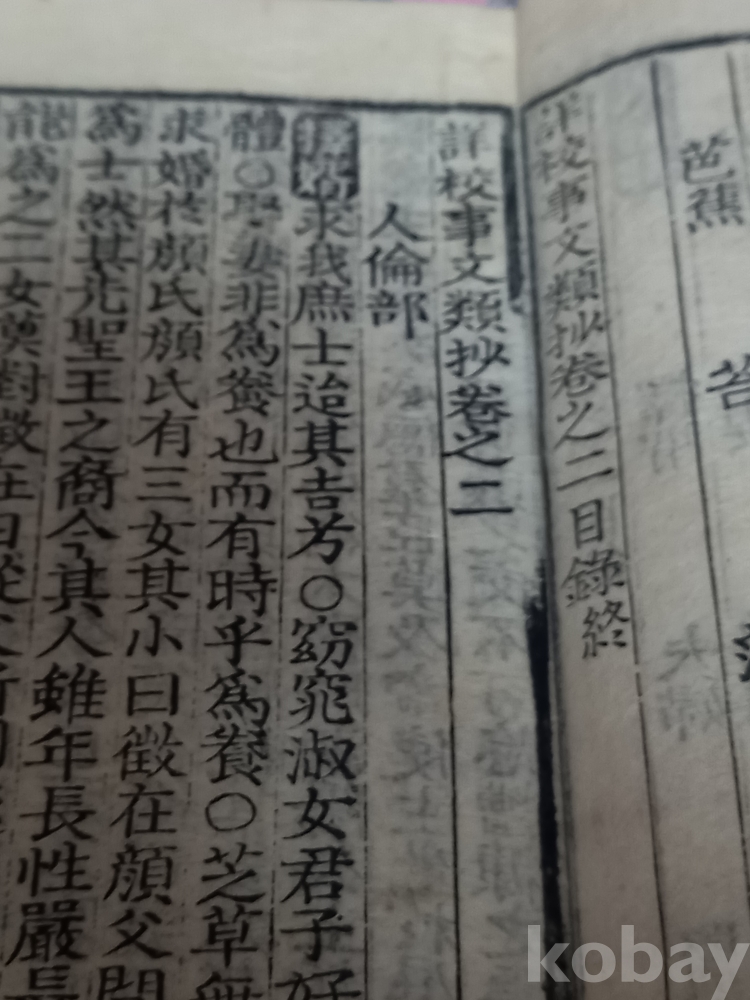 芭蕉
苔
詳校事文類抄卷之二目錄終
詳校事文類抄卷之二
人倫部
求我庶士迨其吉兮○窈窕淑女君子好
體○娶妻非爲養也而有時乎爲養○芝草無
求婚於顔氏顔氏有三女其小曰徵在顔父問
爲士然其先聖王之裔今其人雖年長性嚴
龍爲之二女莫對徵在曰從父所
kobay